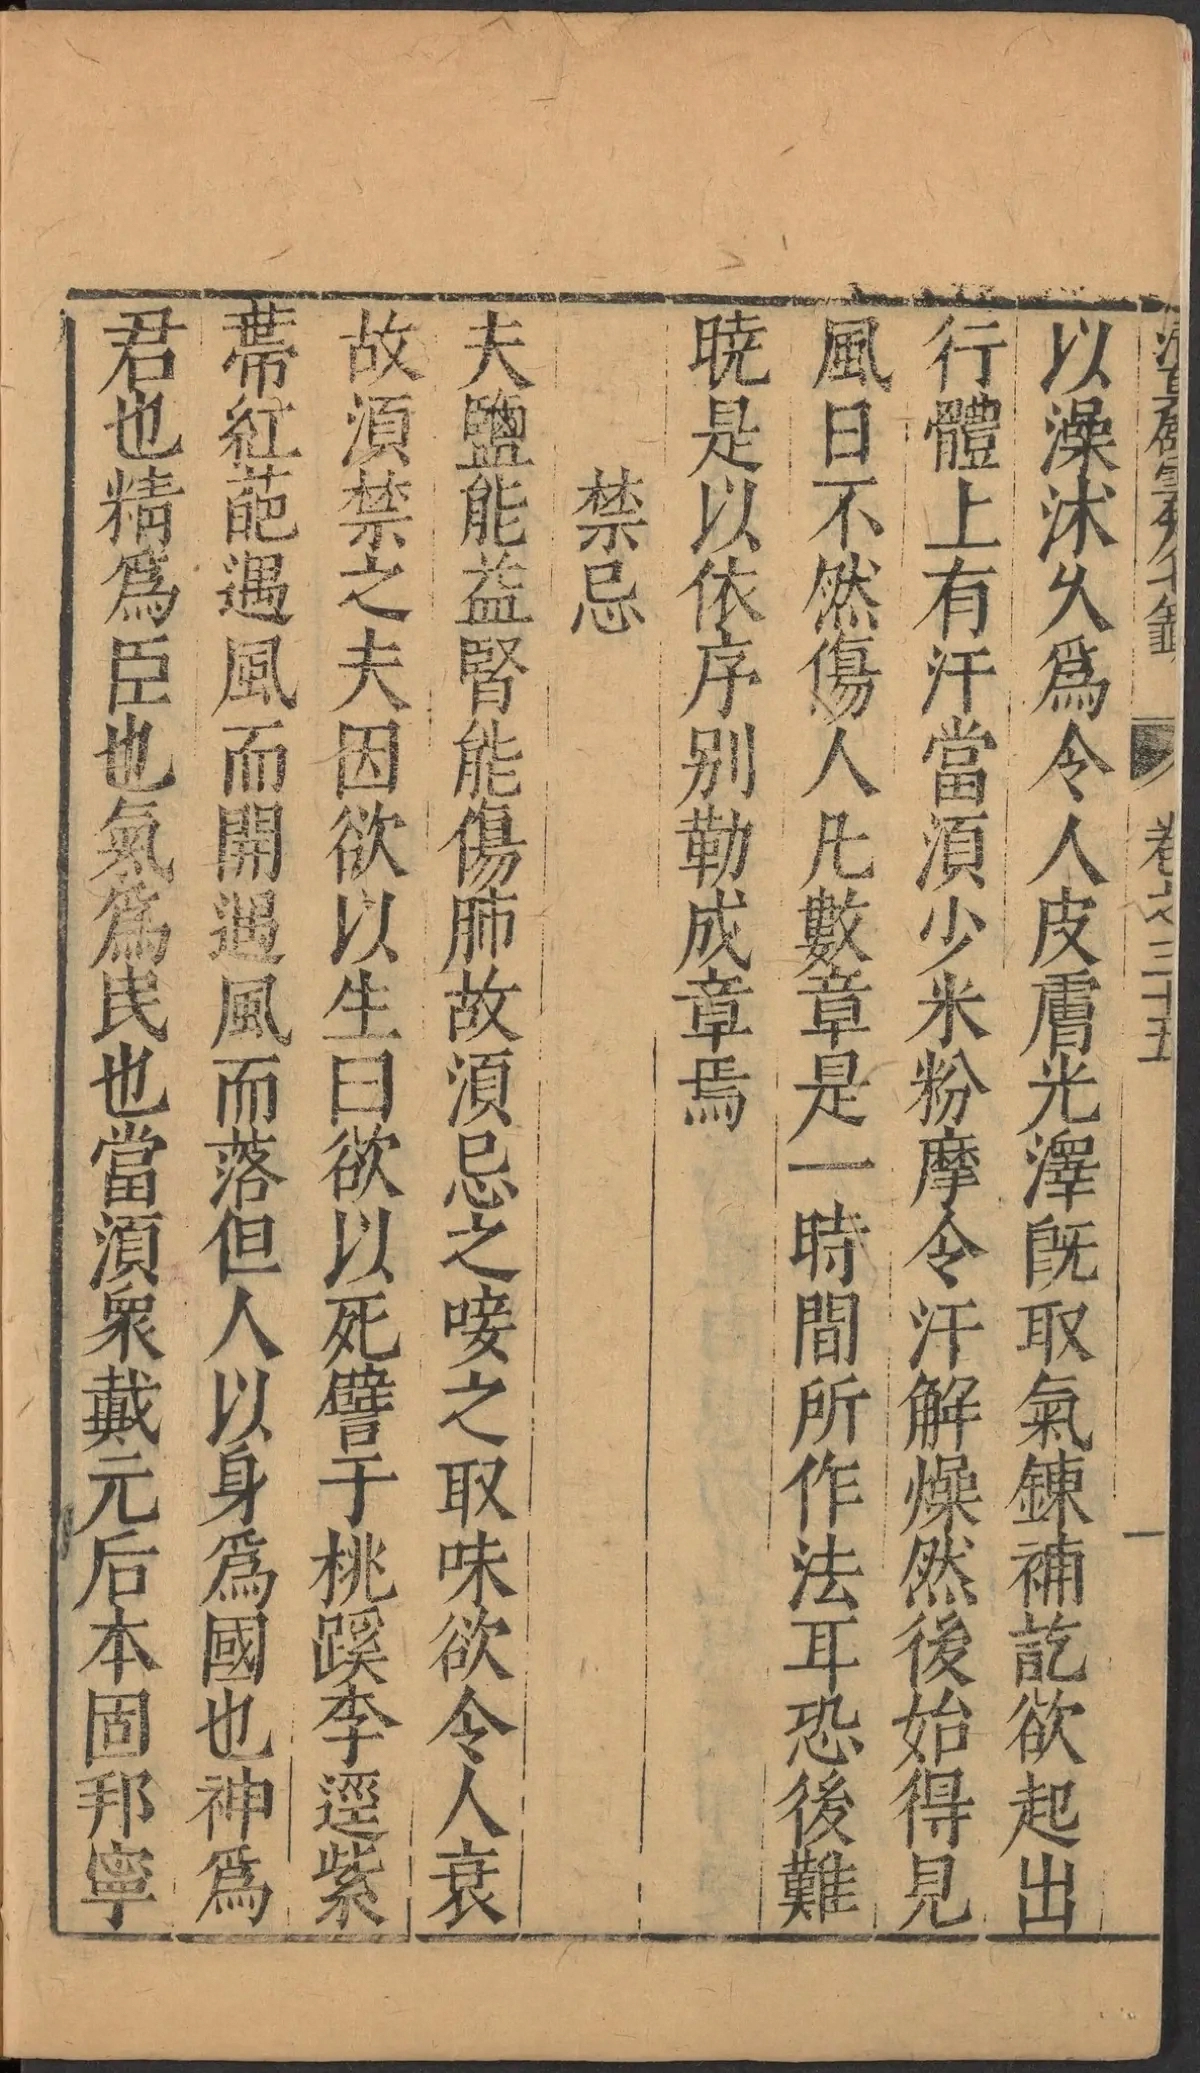 卷之三十五
一
以澡沐久爲令人皮膚光澤旣取氣鍊補訖欲起出
行體上有汗當須少米粉摩令汗解燥然後始得見
風日不然傷人凡數章是一時間所作法耳恐後難
暁是以依序别勒成章焉
禁忌
夫鹽能益腎能傷肺故須忌之唼之取味欲令人衰
故須禁之夫因欲以生曰欲以死譬于桃蹊李逕紫
蔕紅葩遇風而開遇風而落但人以身爲國也神爲
君也精爲臣也氣爲民也當須衆戴元后本固邦寧